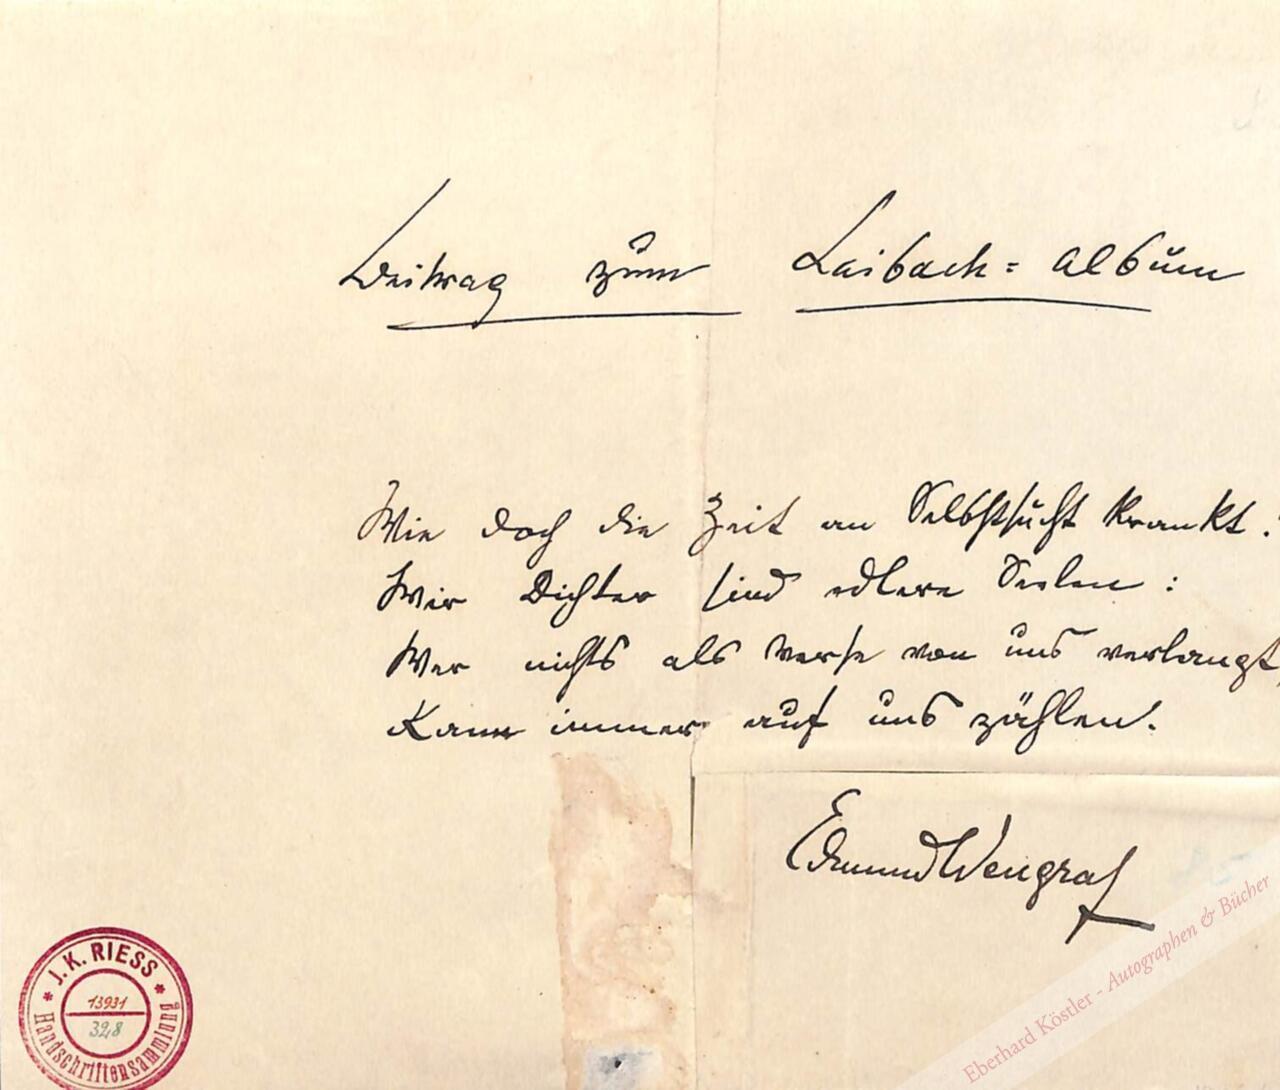 Beitrag zum Laibach=Album
Wie doch die Zeit an Selbstsucht krankt!
Wir Dichter sind edlere Seelen:
Wer nichts als Verse von uns verlangt,
Kann immer auf uns zählen.
Edmund Wengraf
* J. K. RIESS *
13931
328
Handschriftensammlung
Eberhard Köstler - Autographen & Bücher